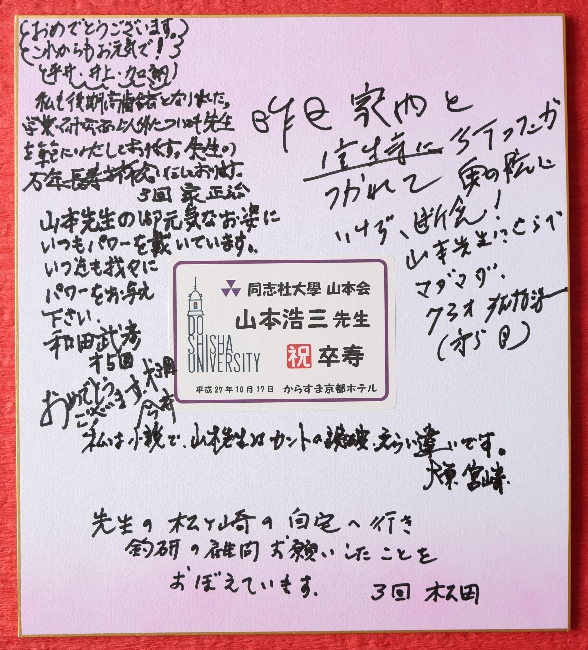 おめでとうございます。
これからもお元気で!
(平井・井上・
私も後期高齢者となりました。
先生
を
いたしております。先生の
万年長寿
いたします。
3回
山本先生の御元気なお姿に
いつもパワーを戴いています。
いつ迄も我々に
パワーをお与え
下さい。
和田武彦
才5回
おめでとう
ございます
昨日 家内と
に行ったが
つかれて 奥の院に
いけず、断念!
山本先生にくらべ
マダマダ.
73才
(才5回)
DO
SHISHA
UNIVERSITY
同志社大學 山本会
山本浩三 先生
祝 卒寿
平成27年10月17日 からすま京都ホテル
私は小説で、山本先生はカントの えらい違いです。
宮崎
先生の松ヶ崎の自宅へ行き
釣研の顧問お願いしたことを
おぼえています.
3回 松田